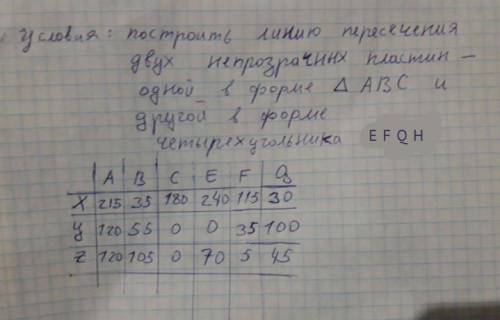 Условия: построить линию пересечения
двух непрозрачных пластин –
одной в форме △ ABC и
другой в форме
четырехугольника E F Q H
A B C E F Q
X 215 35 180 240 115 30
Y 120 55 0 0 35 100
Z 120 105 0 70 5 45